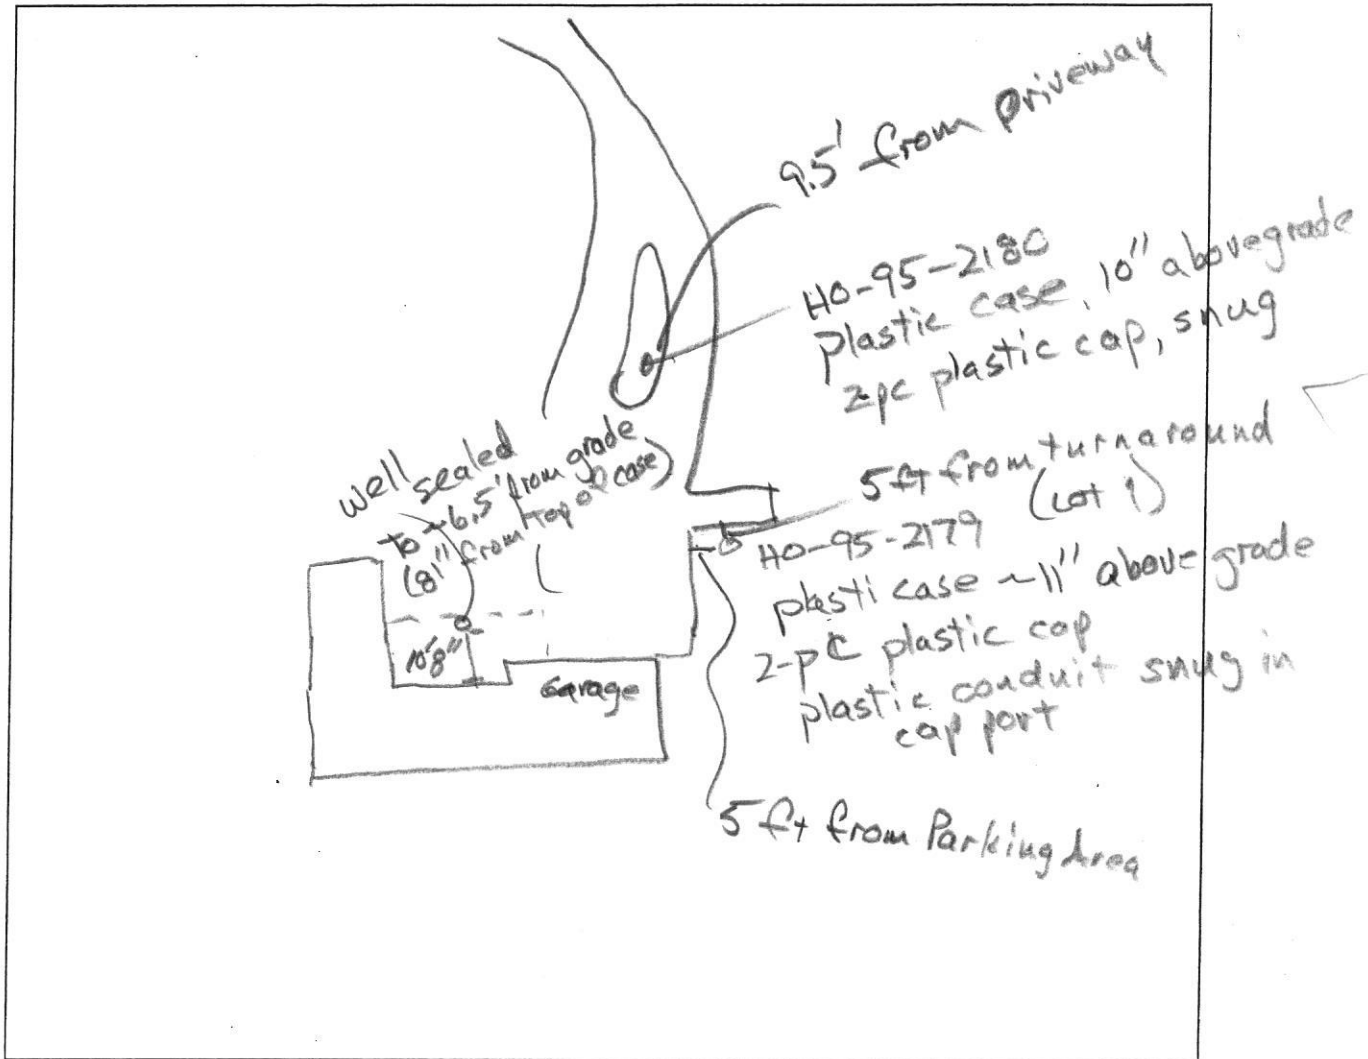 9.5' from Driveway
HO-95-2180
plastic case, 10" above grade
2pc plastic cap, snug
well sealed
to ~6.5' from grade
(81" from top of case)
5 ft from turnaround
(Lot 1)
HO-95-2179
plasti case ~11" above grade
2-pc plastic cap
plastic conduit snug in
cap port
10'8"
Garage
5 ft from Parking Area